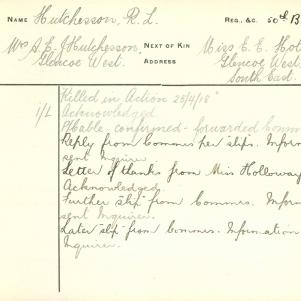 NAME Hutchesson, R. L. REG., &C. 50th B
Mrs A. E. J Hutchesson, NEXT OF KIN Miss E. E. Hol
Glencoe West. ADDRESS Glencoe West
South East.
1/L Killed in Action 25/4/18
Acknowledged
Cable confirmed - forwarded Comm
Reply from Commrs per slip. Inform
sent Inquirer
Letter of thanks from Miss Holloway
Acknowledged
Further slip from Commrs. Inform
sent Inquirer.
Later slip from Commrs. Information
Inquirer.